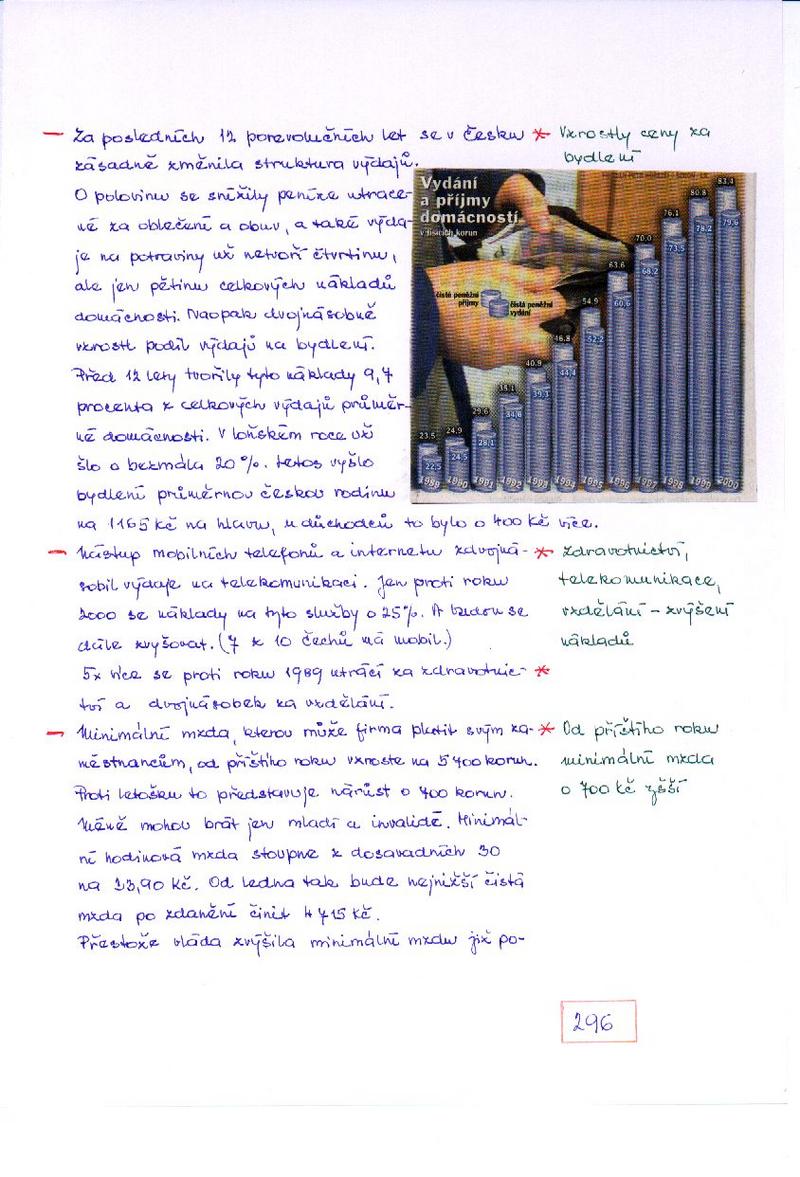 — Za posledních 12 porevolučních let se v Česku * Vzrostly ceny za
bydlení
zásadně změnila struktura výdajů.
O polovinu se snížily peníze utrace-
né za oblečení a obuv, a také výda-
je na potraviny už netvoří čtvrtinu,
ale jen pětinu celkových nákladů
domácností. Naopak dvojnásobně
vzrostl podíl výdajů na bydlení.
Před 12 lety tvořily tyto náklady 9,7
procenta z celkových výdajů průměr-
né domácnosti. V loňském roce už
šlo o bezmála 20%. Letos vyšlo
bydlení průměrnou českou rodinu
na 1165 kč na hlavu, u důchodců to bylo o 400 kč více.
Vydání
a příjmy
domácností
v tisících korun
čisté peněžní
příjmy
čistá peněžní
vydání
23,5 24,9 29,6 35,1 40,9 46,8 54,9 63,6 70,0 76,1 80,8 83,4
22,5 24,5 28,1 34,6 39,3 44,4 52,2 60,6 68,2 73,5 78,2 79,6
1989 1990 1991 1992 1993 1994 1995 1996 1997 1998 1999 2000
— Nástup mobilních telefonů a internetu zdvojná- * Zdravotnictví,
sobil výdaje na telekomunikaci. Jen proti roku telekomunikace,
2000 se náklady na tyto služby o 25%. A budou se vzdělání – zvýšení
dále zvyšovat. (7 z 10 čechů má mobil.) nákladů
5x více se proti roku 1989 utrácí za zdravotnic- *
tví a dvojnásobek za vzdělání.
— Minimální mzda, kterou může firma platit svým za- * Od příštího roku
městnancům, od příštího roku vzroste na 5 700 korun. minimální mzda
Proti letošku to představuje nárůst o 700 korun. o 700 kč
Méně mohou brát jen mladí a invalidé. Minimál-
ní hodinová mzda stoupne z dosavadních 30
na 33,90 kč. Od ledna tak bude nejnižší čistá
mzda po zdanění činit 4 715 kč.
Přestože vláda zvýšila minimální mzdu již po-
296